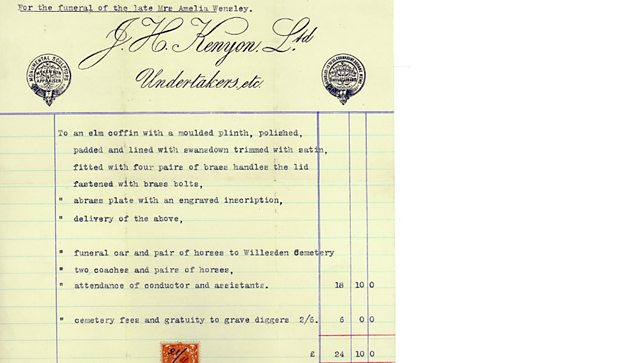 For the funeral of the late Mrs Amelia Wensley.
J. H. Kenyon, Ltd
Undertakers, etc.
MONUMENTAL SCULPTORS
To an elm coffin with a moulded plinth, polished,
padded and lined with swansdown trimmed with satin,
fitted with four pairs of brass handles the lid
fastened with brass bolts,
" abrass plate with an engraved inscription,
" delivery of the above,
" funeral car and pair of horses to Willesden Cemetery
" two coaches and pairs of horses,
" attendance of conductor and assistants. 18 10 0
" cemetery fees and gratuity to grave diggers 2/6. 6 0 0
£ 24 10 0